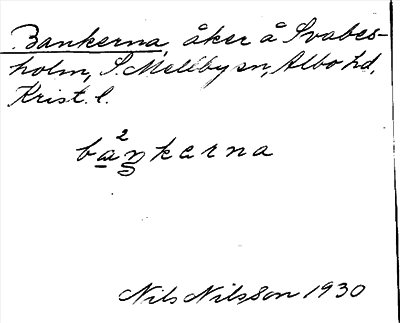 Bankerna, åker å Svabes-
holm, S. Mellby sn, Albo hd,
Krist. l.
2
baŋkerna
Nils Nilsson 1930